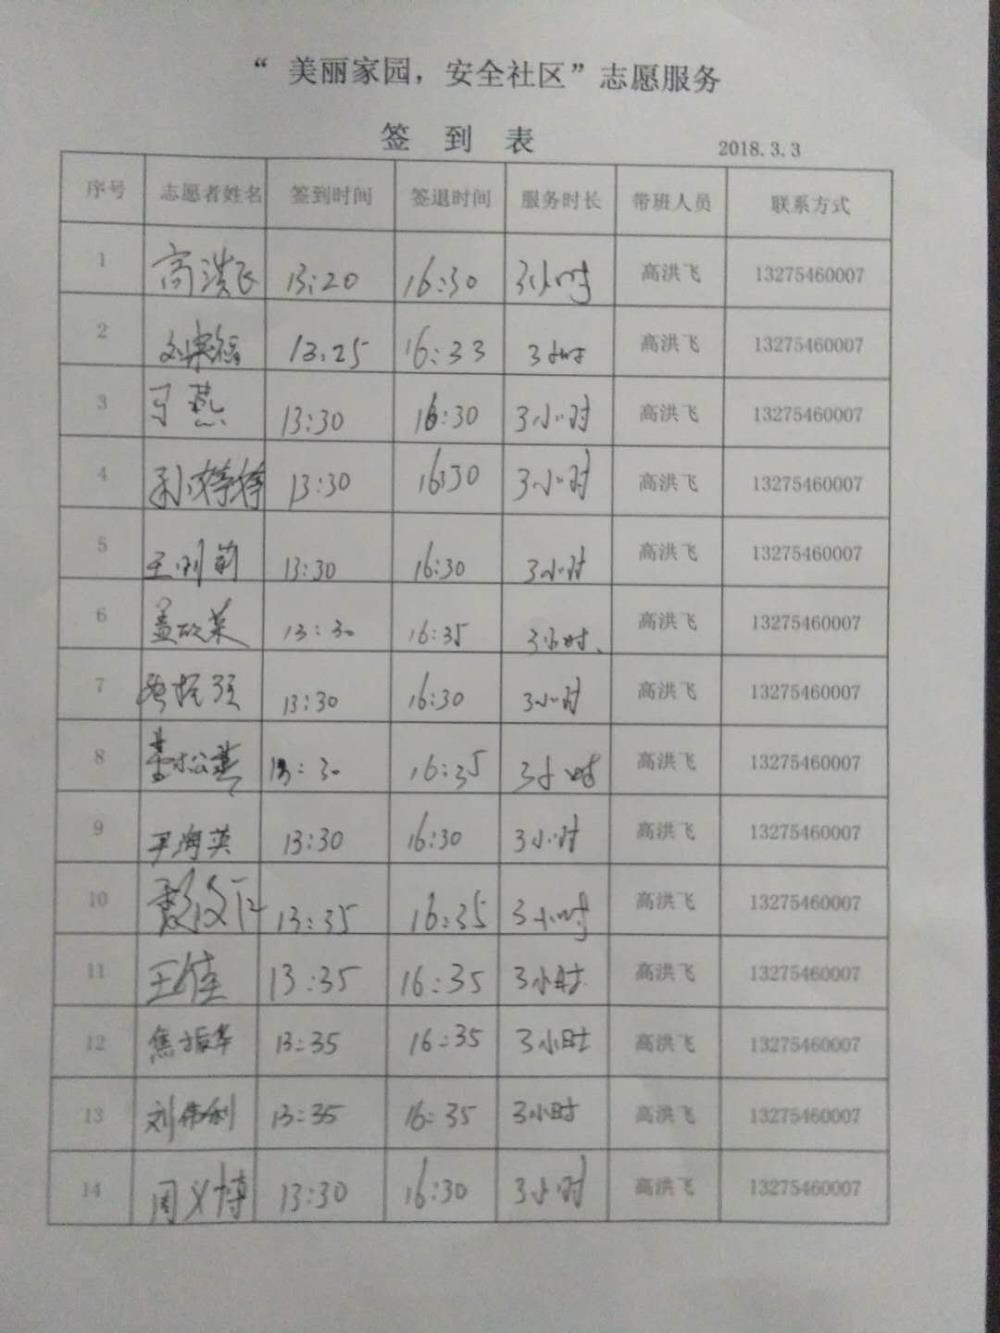 “ 美丽家园，安全社区”志愿服务
签 到 表
2018.3.3
序号 志愿者姓名 签到时间 签退时间 服务时长 带班人员 联系方式
1 高洪飞 13:20 16:30 3小时 高洪飞 13275460007
2 13:25 16:33 3小时 高洪飞 13275460007
3 燕 13:30 16:30 3小时 高洪飞 13275460007
4 13:30 16:30 3小时 高洪飞 13275460007
5 王 莉 13:30 16:30 3小时 高洪飞 13275460007
6 13:30 16:35 3小时、 高洪飞 13275460007
7 13:30 16:30 3小时 高洪飞 13275460007
8 13:30 16:35 3小时 高洪飞 13275460007
9 尹海英 13:30 16:30 3小时 高洪飞 13275460007
10 13:35 16:35 3小时 高洪飞 13275460007
11 王佳 13:35 16:35 3小时 高洪飞 13275460007
12 焦振华 13:35 16:35 3小时 高洪飞 13275460007
13 刘伟利 13:35 16:35 3小时 高洪飞 13275460007
14 周义博 13:30 16:30 3小时 高洪飞 13275460007